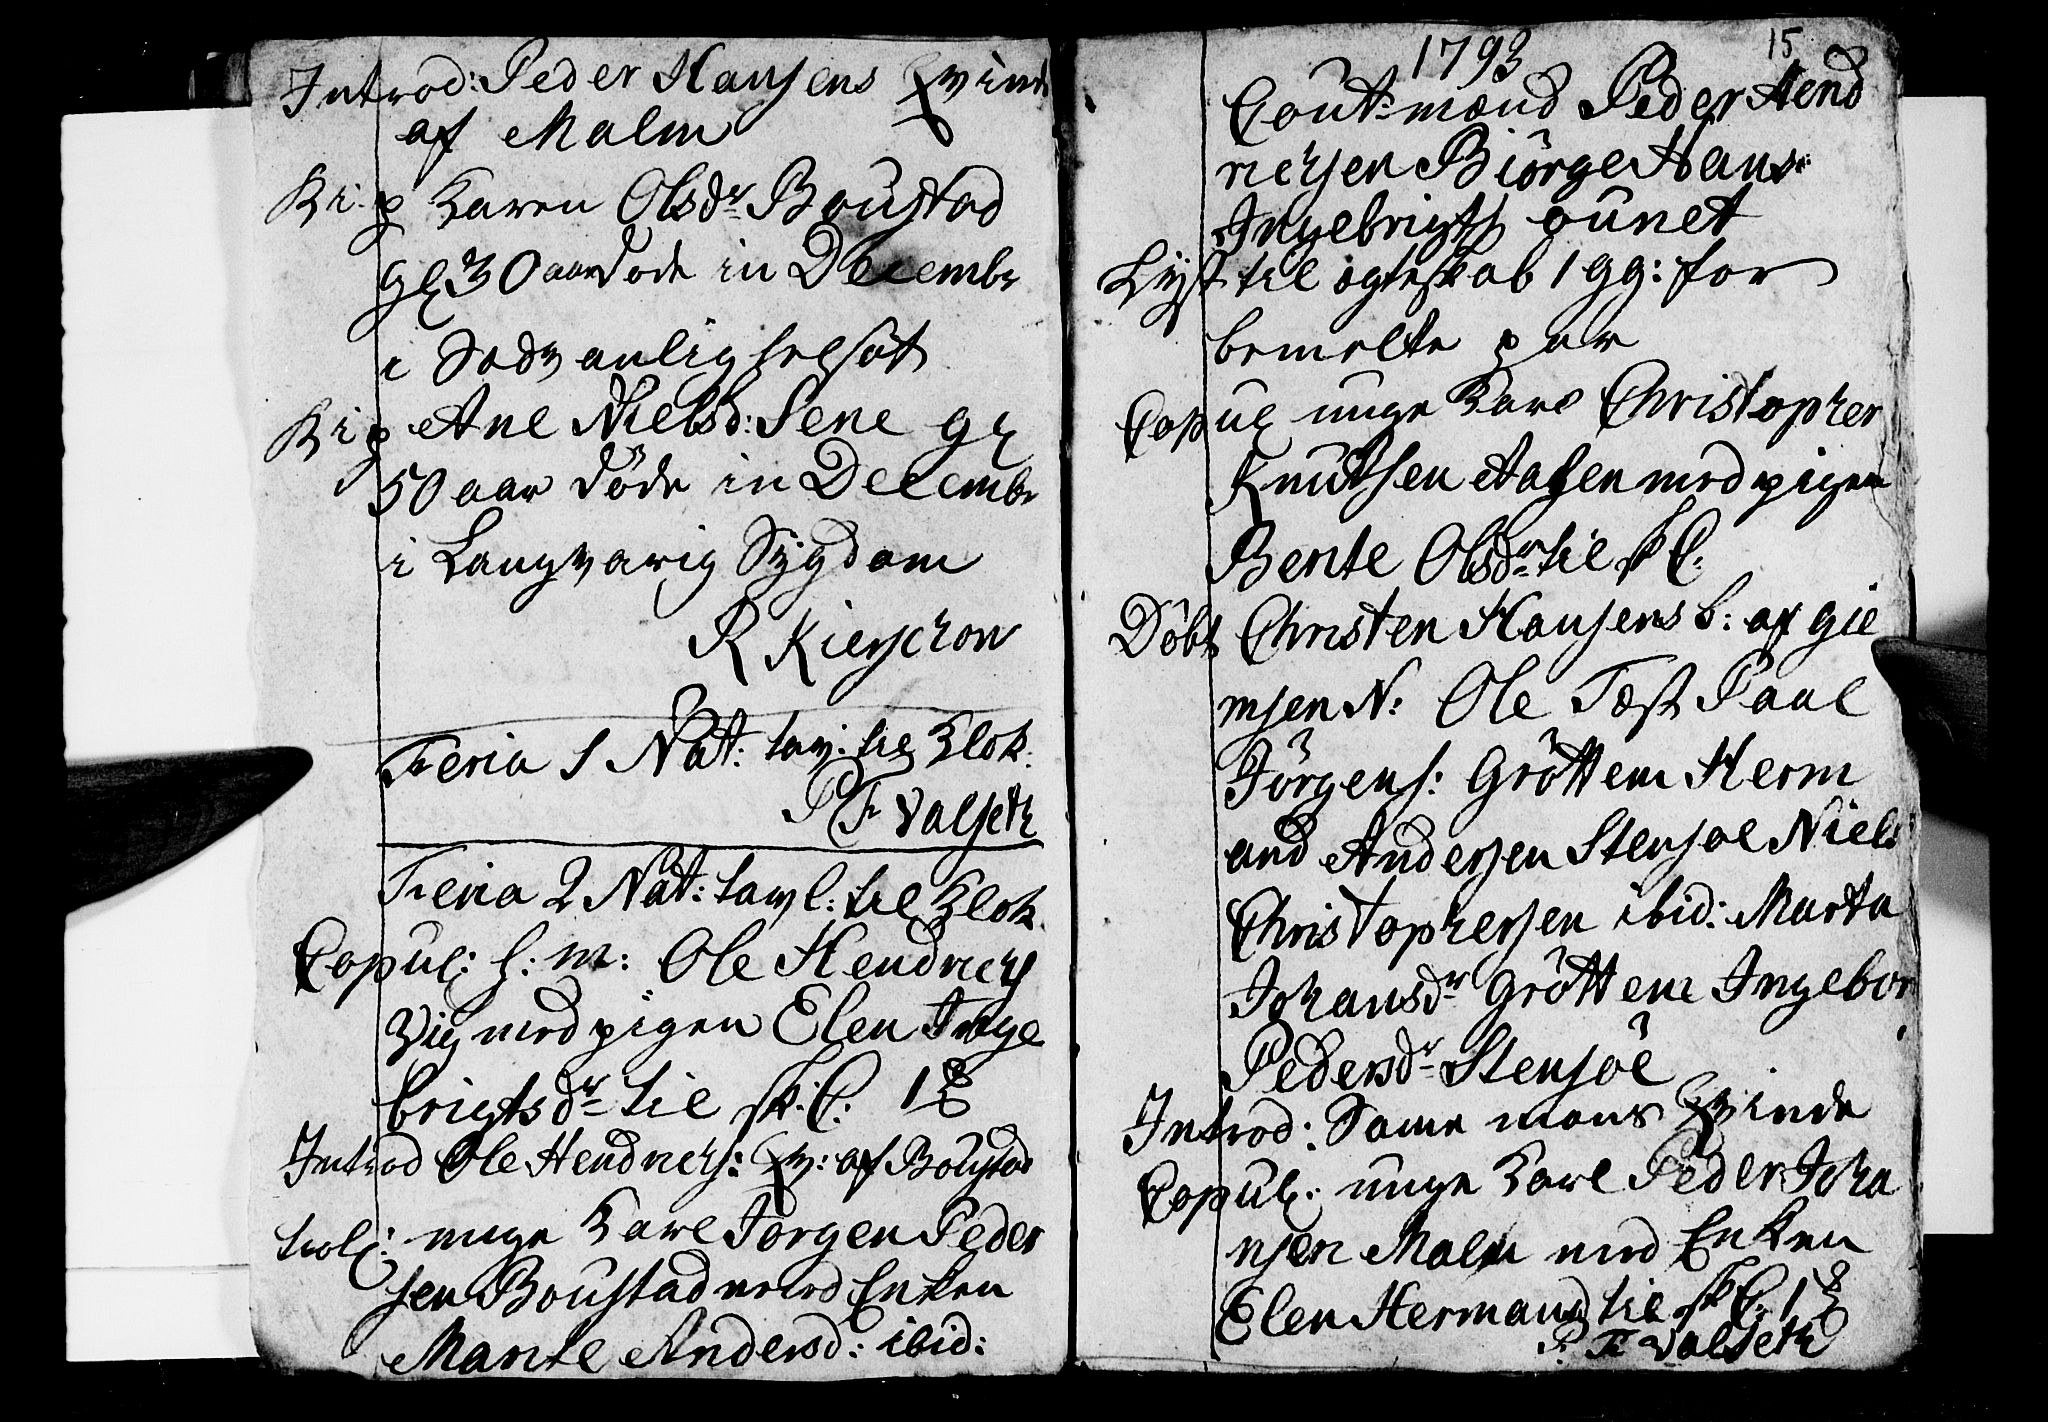 Introd: Peder Hansens Qvinde
af Malm
Karen Olsdr Boustad
gl 30 aar døde in Decembr
i Sædvanlig
Ane Nielsd: Sene gl
50 aar døde in Decembr
i Langvarig Sÿgdom
R Kierschow
Feria 1 Nat: til Klok.
P F Valseth
Feria 2 Nat: til Klok
Copul: s: m: Ole Hendrichs
Vig med pigen Elen Inge
brigtsdr til sk: C: 1
Introd Ole Hendrichs: Qv: af Boustad
trol: unge Karl Jørgen Peder
sen Boustad med Enken
Marite Andersd: ibid:
1793
15
Cout: mænd Peder Hend
richsen Biørge Hans
Ingebrigts ounet
Lyst til ægteskab 1 gg: for
bemelte par
Copul unge Karl Christopher
Knutsen Aasen med pigen
Bente Olsdr til sk C:
Døbt Christen Hansens b: af gie
msen N: Ole Test Paal
Jørgens: Grøttem Herm
and Andersen Stensøe Niels
Christophersen ibid: Marta
Johansdr Grøttem Ingebor
Pedersdr Stensøe
Introd: Same mans Qvinde
Copul: unge Karl Peder Joha
nsen Malm med Enken
Elen Hermand til sk C. 1
P. F Valseth